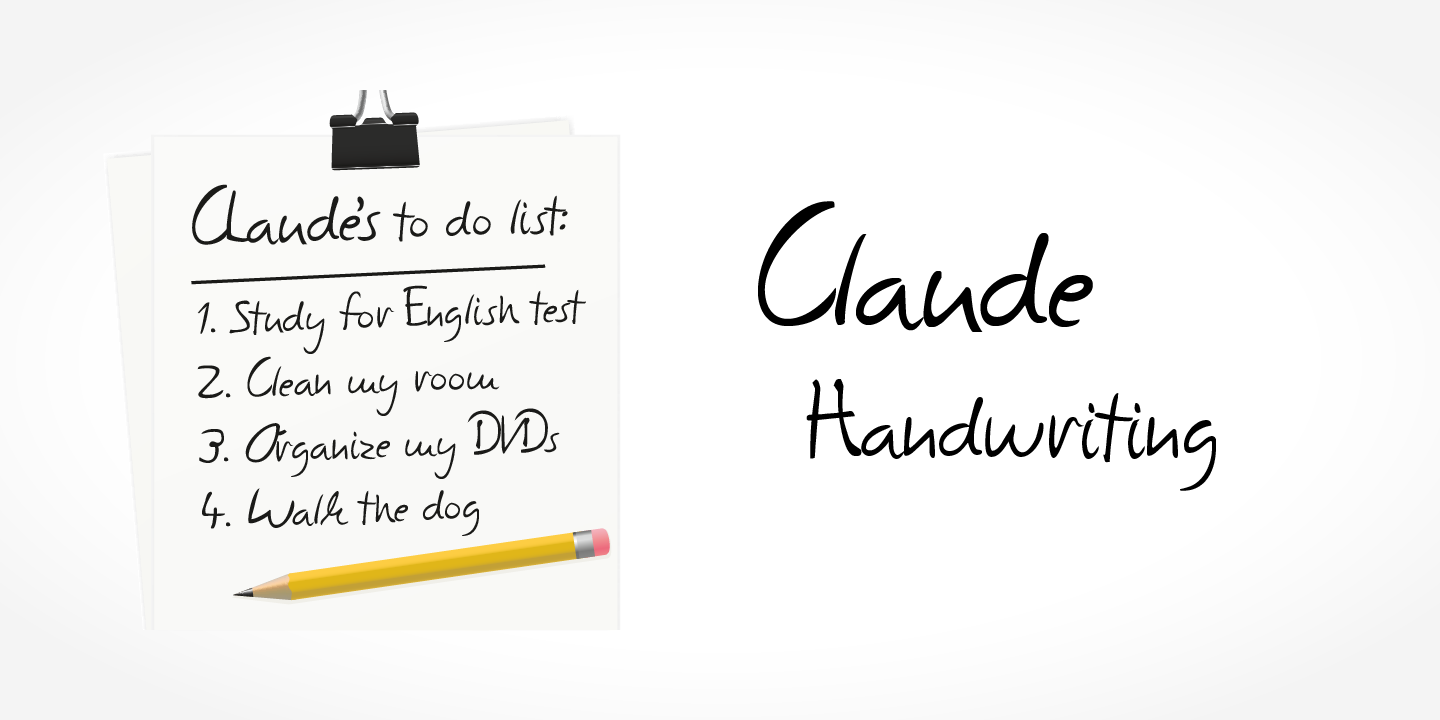 Claude's to do list:
1. Study for English test
2. Clean my room
3. Organize my DVDs
4. Walk the dog
Claude
Handwriting